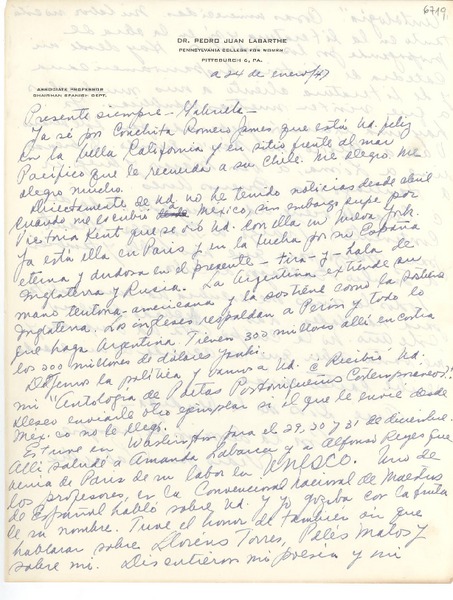 6719
DR. PEDRO JUAN LABARTHE
PENNSYLVANIA COLLEGE FOR WOMEN
PITTSBURGH 6, PA.
ASSOCIATE PROFESSOR
CHAIRMAN SPANISH DEPT.
a 24 de enero/47
Presente siempre - Gabriela -
Ya sé por Conchita Romero James que está Ud. feliz
en la bella California y en sitio frente al mar
Pacífico que le recuerda a su Chile. Me alegro. Me
alegro mucho.
Directamente de Ud. no he tenido noticias desde abril
cuando me escribió a México, sin embargo supe por
Victoria Kent que se vió Ud. con ella en Nueva York.
Ya está ella en París y en la lucha por su España
eterna y dudosa en el presente - tira - y - hala de
Inglaterra y Rusia. La Argentina extiende su
mano teutona-americana y la sostiene como la sostiene
Inglaterra. Los ingleses respaldan a Perón y todo lo
que haga Argentina. Tienen 300 millones allí en contra
los 300 millones de dólares yanki.
Dejemos la política y vamos a Ud. ¿Recibió Ud.
mi "Antología de Poetas Portorriqueños Contemporáneos"?
Deseo enviarle otro ejemplar si el que le envié desde
México no le llegó.
Estuve en Washington para el 29, 30 y 31 de diciembre.
Allí saludé a Amanda Labarca y a Alfonso Reyes que
venía de París de su labor en UNESCO. Uno de
los profesores, en la Convencional nacional de Maestros
de Español habló sobre Ud. y yo gozaba con la
de su nombre. Tuve el honor de también oir que
hablaran sobre Llorens Torres, Palés Matos y
sobre mí. Discutieron mi poesía y mi